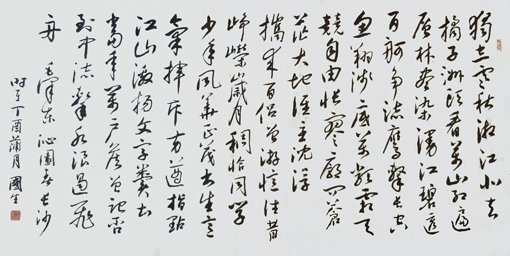 獨立寒秋湘江北去
橘子洲頭看萬山紅遍
層林盡染漫江碧透
百舸爭流鷹擊長空
魚翔淺底萬類霜天
競自由悵寥廓問蒼
茫大地誰主沈浮
攜來百侶曾游憶往昔
崢嶸歲月稠恰同學
少年風華正茂書生意
氣揮斥方遒指點
江山激揚文字糞土
當年萬戶侯曾記否
到中流擊水浪遏飛
舟 毛澤東 沁園春 長沙
時于丁酉蒲月 國生